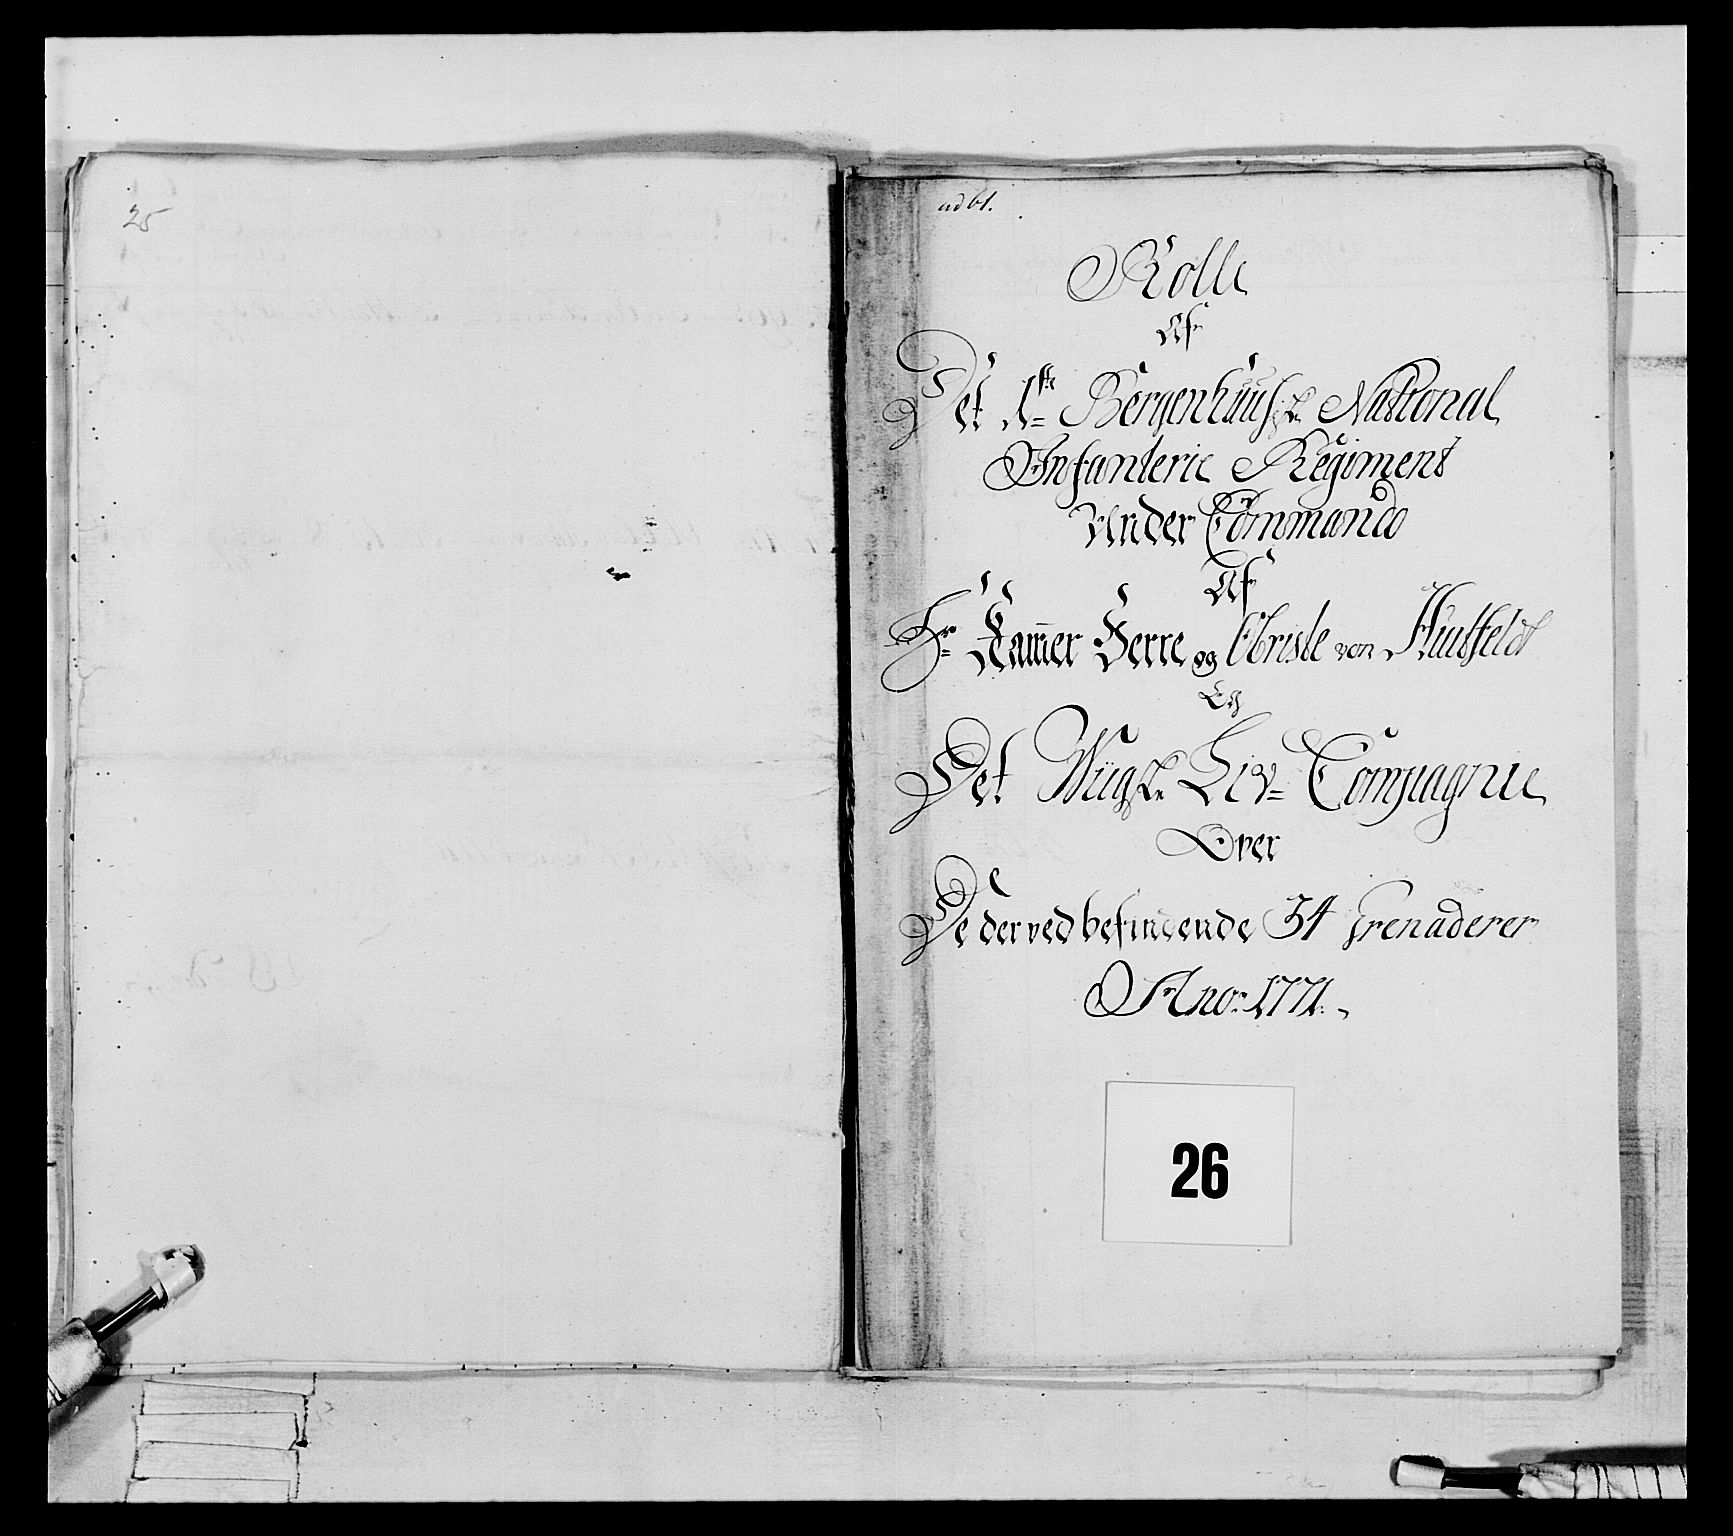 25
ad 61.
Rolle
Af
Det 1ste Bergenhuusske National
Infanterie Regiment
Under Commando
Af
Hr Kam̄er Herre og Obriste von Huitfeldt
Og
Det Wiigske Liv= Compagnie
Over
De derved befindende 34 Grenaderer
Ano: 1771.
26